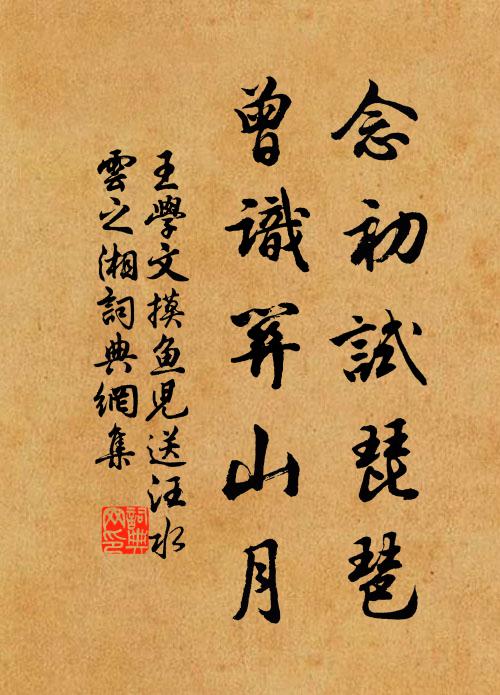 念初試琵琶
曾識関山月
王學文摸魚兒送汪水
雲之湘詞典網集
詞典網印